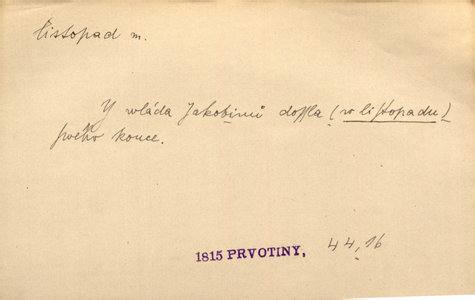 listopad m.
Y wláda Jakobinů dossla (w listopadu)
swého konce.
1815 PRVOTINY, 44, 16